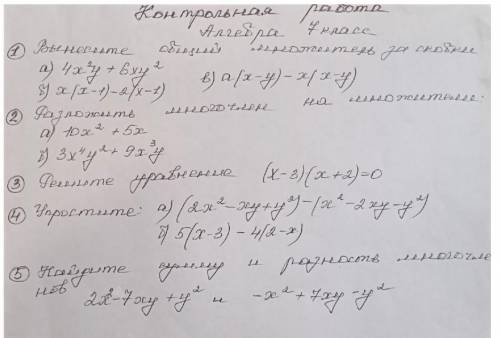 Контрольная работа
Алгебра 7 класс
① Вынесите общий множитель за скобки
а) 4x²y + 6xy² в) a(x-y) - x(x-y)
б) x(x-1) - 2(x-1)
② Разложить многочлен на множители:
а) 10x² + 5x
б) 3x⁴y² + 9x³y
③ Решите уравнение (x-3)(x+2)=0
④ Упростите: а) (2x² - xy + y²) - (x² - 2xy - y²)
б) 5(x-3) - 4(2-x)
⑤ Найдите сумму и разность многочле
нов
2x² - 7xy + y² и -x² + 7xy - y²